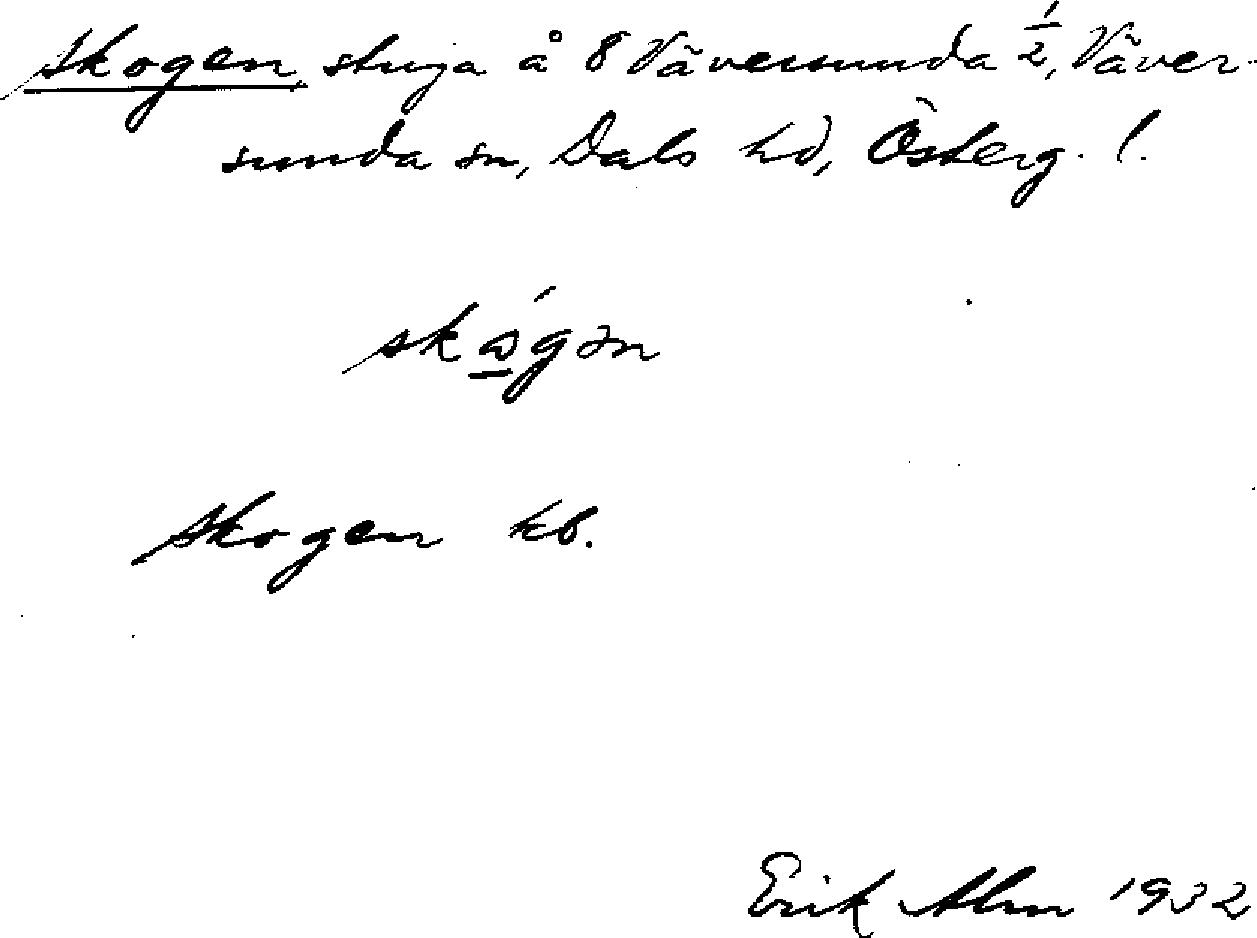 Skogen, stuga å 8 Väversunda 1/2, Väver-
sunda sn, Dals hd, Österg. l.
skògən
Skogen kb.
Erik Alm 1932